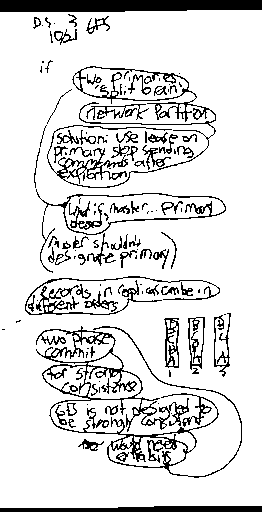 D.S. 3
10/21 GFS
if
two primaries
split brain
network partition
solution: use lease on
primary stop sending
commands after
expiration
what if master... primary
dead
master shouldn't
designate primary
records in replicas can be in
different orders
two phase
commit
for strong
consistency
GFS is not designed to
be strongly consistent
would need
1 2 3